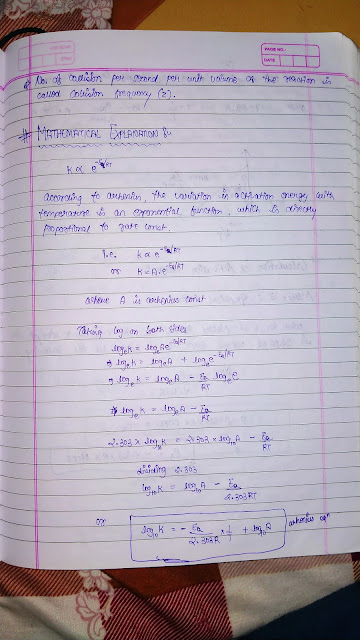 PAGE NO.:
DATE
* No. of collision per second per unit volume of the reaction is
called collision frequency (Z).
# MATHEMATICAL EXPLANATION :-
K ∝ e^-Ea/RT
according to arhenius, the variation is activation energy with
temperature is an exponential function, which is directly
proportional to rate const.
i.e. K ∝ e^-Ea/RT
or K = A.e^-Ea/RT
where A is arhenius const
Taking log on both sides
log_e K = log_e A e^-Ea/RT
⇒ log_e K = log_e A + log_e e^-Ea/RT
⇒ log_e K = log_e A - Ea/RT log_e e
⇒ log_e K = log_e A - Ea/RT
2.303 × log_10 K = 2.303 × log_10 A - Ea/RT
dividing 2.303
log_10 K = log_10 A - Ea/2.303RT
or log_10 K = - Ea/2.303R × 1/T + log_10 A arhenius eqn